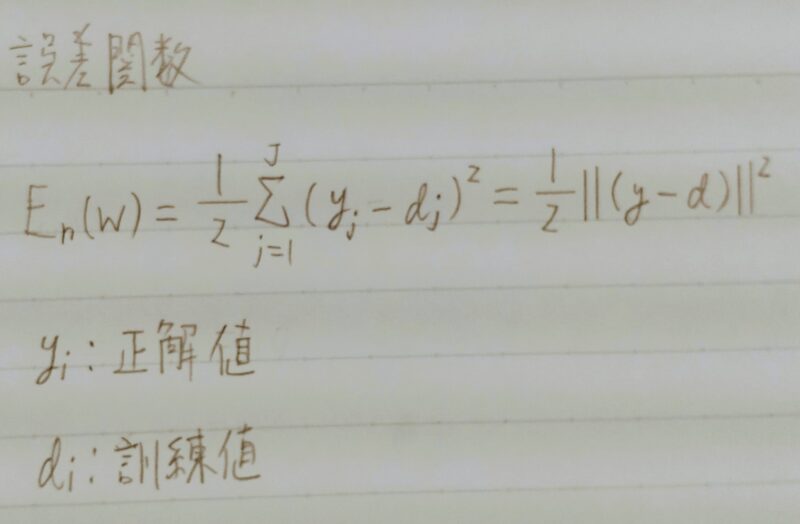 誤差関数
E_n(w) = \frac{1}{2} \sum_{j=1}^{J} (y_j - d_j)^2 = \frac{1}{2} ||(y - d)||^2
y_i : 正解値
d_i : 訓練値